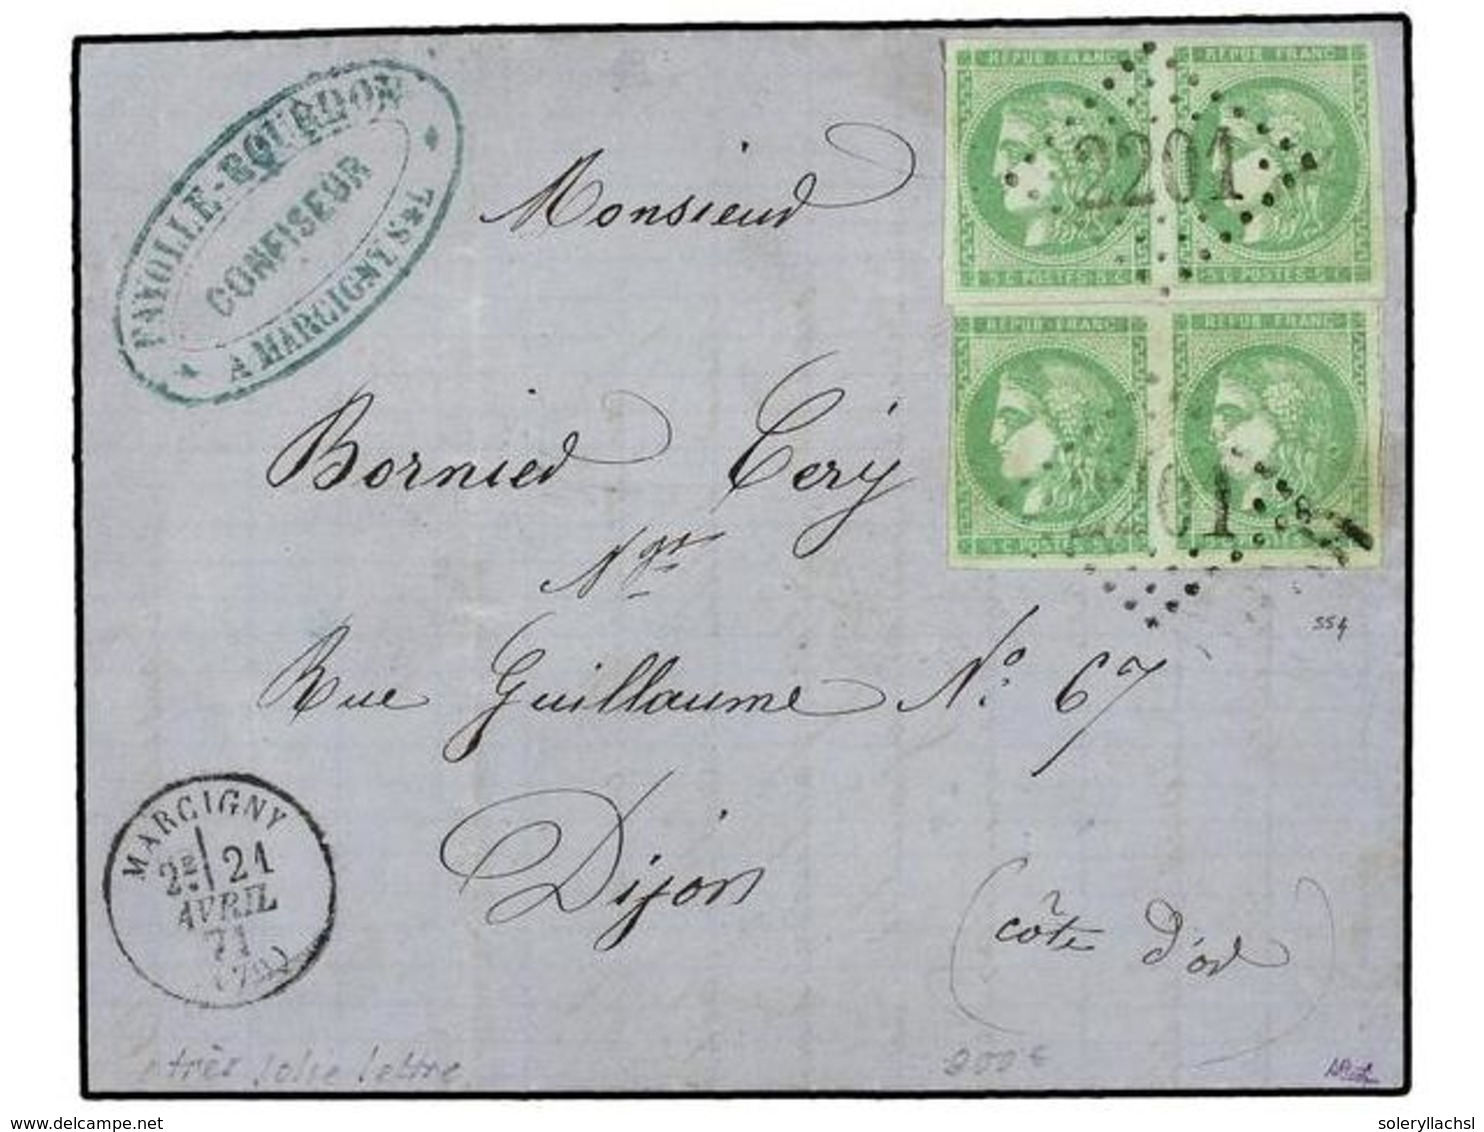 FAYOLLE-BOURDON
CONFISEUR
A MARCIGNY S&L
RÉPUB FRANC
RÉPUB FRANC
2201
5 C POSTES 5 C
5 C POSTES 5 C
RÉPUB FRANC
RÉPUB FRANC
2201
5 C POSTES 5 C
Monsieur
Bornier Cery
Ngt
Rue Guillaume No. 67
Dijon
(côte d'or)
554
MARCIGNY
2E 21
AVRIL
71
(70)
très jolie lettre
200€
delcampe.net
soleryllachsl